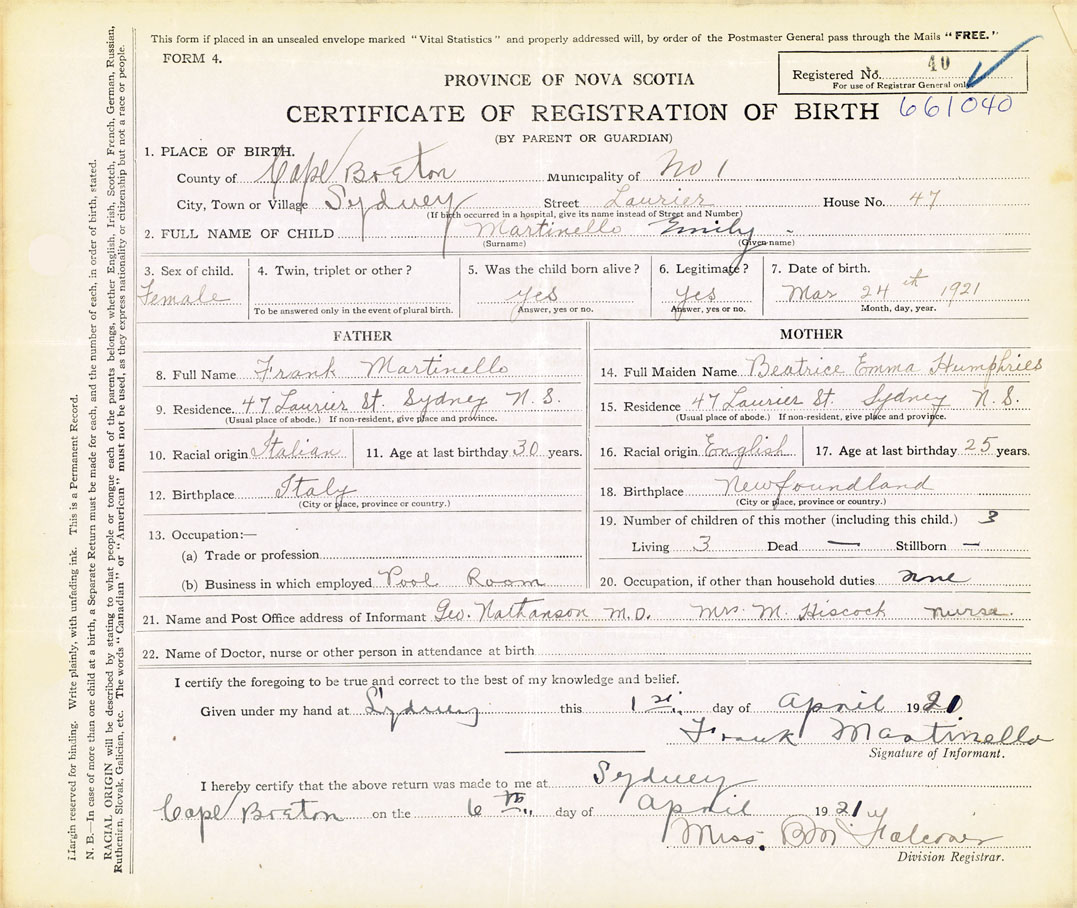 This form if placed in an unsealed envelope marked "Vital Statistics" and properly addressed will, by order of the Postmaster General pass through the Mails "FREE."
FORM 4.
Registered No. 40
For use of Registrar General only.
PROVINCE OF NOVA SCOTIA
CERTIFICATE OF REGISTRATION OF BIRTH 661040
(BY PARENT OR GUARDIAN)
1. PLACE OF BIRTH.
County of Cape Breton Municipality of No 1
City, Town or Village Sydney Street Laurier House No. 47
(If birth occurred in a hospital, give its name instead of Street and Number)
2. FULL NAME OF CHILD Martinello Emily -
(Surname) (Given name)
3. Sex of child. 4. Twin, triplet or other? 5. Was the child born alive? 6. Legitimate? 7. Date of birth.
Female yes yes Mar 24th 1921
To be answered only in the event of plural birth. Answer, yes or no. Answer, yes or no. Month, day, year.
FATHER
8. Full Name Frank Martinello
9. Residence. 47 Laurier St. Sydney N. S.
(Usual place of abode.) If non-resident, give place and province.
10. Racial origin Italian 11. Age at last birthday 30 years.
12. Birthplace Italy
(City or place, province or country.)
13. Occupation:—
(a) Trade or profession
(b) Business in which employed Pool Room
MOTHER
14. Full Maiden Name Beatrice Emma Humphries
15. Residence 47 Laurier St. Sydney N. S.
(Usual place of abode.) If non-resident, give place and province.
16. Racial origin English 17. Age at last birthday 25 years.
18. Birthplace Newfoundland
(City or place, province or country.)
19. Number of children of this mother (including this child.) 3
Living 3 Dead — Stillborn —
20. Occupation, if other than household duties none
21. Name and Post Office address of Informant Geo. Nathanson M.D. Mrs M. Hiscock nurse.
22. Name of Doctor, nurse or other person in attendance at birth
I certify the foregoing to be true and correct to the best of my knowledge and belief.
Given under my hand at Sydney this 1st. day of April 19
Frank Martinello
Signature of Informant.
I hereby certify that the above return was made to me at Sydney
Cape Breton on the 6th. day of April 1921
Miss. B M Falconer
Division Registrar.
Margin reserved for binding. Write plainly, with unfading ink. This is a Permanent Record.
N. B.—In case of more than one child at a birth, a Separate Return must be made for each, and the number of each, in order of birth, stated.
RACIAL ORIGIN will be described by stating to what people or tongue each of the parents belongs, whether English, Irish, Scotch, French, German, Russian,
Ruthenian, Slovak, Galician, etc. The words "Canadian" or "American" must not be used, as they express nationality or citizenship but not a race or people.